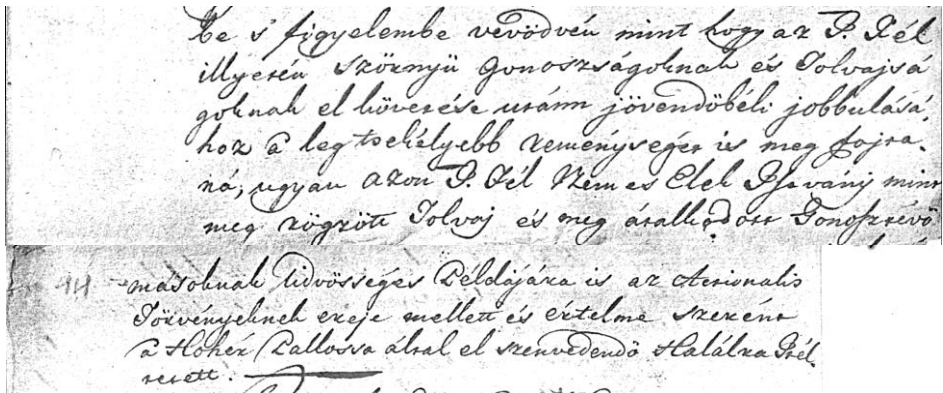 be s' figyelembe vevődvén mint hogy az P. Fél
illyetén Szörnyü Gonoszságoknak és Tolvajsá
goknak el követése utánn jövendőbéli jobbulásá
hoz a leg tsekélyebb reménységét is meg fojta
ná, ugyan azon P. Fél Nemes Elek István mint
meg rögzött Tolvaj és meg átalkodott Gonosztévő
másoknak üdvösséges Példájára is az
Törvényeknek ereje mellett és értelme szerént
a Hohér Pallossa által el szenvedendő Halálra Itél
tetett.